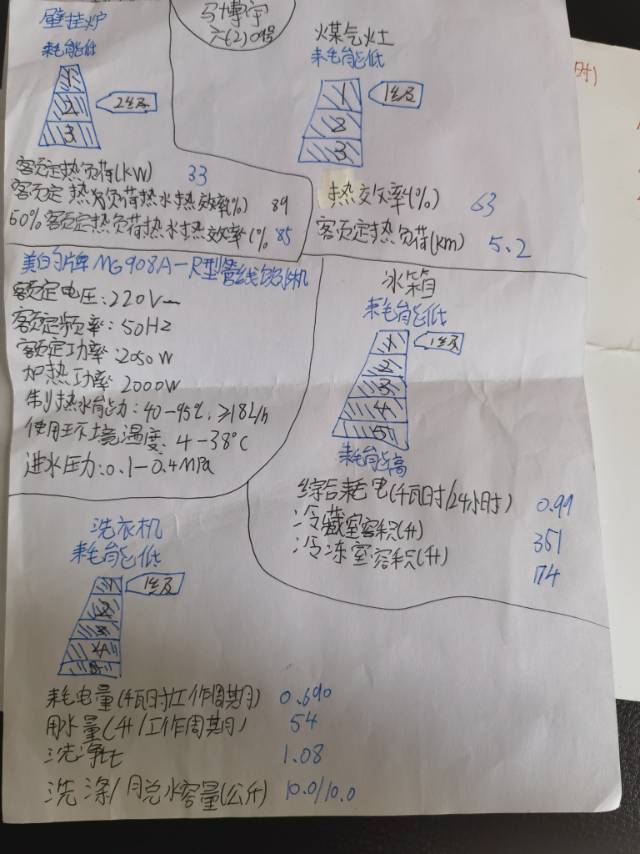 马博宇
六(2)01号
壁挂炉
耗能低
1
2
2级
3
额定热负荷(kW) 33
额定热负荷热水热效率(%) 89
50%额定热负荷热水热效率(% 85
煤气灶
耗能低
1
1级
2
3
热效率(%) 63
额定热负荷(km) 5.2
美的牌MG908A-R型管线饮水机
额定电压:220V~
额定频率:50Hz
额定功率:2050W
加热功率 2000W
制热水能力:40-95℃,≥18L/h
使用环境温度:4-38°C
进水压力:0.1-0.4MPa
冰箱
耗能低
1
1级
2
3
4
5
耗能高
综合耗电(千瓦时/24小时) 0.99
冷藏室容积(升) 351
冷冻室容积(升) 174
洗衣机
耗能低
1
1级
2
3
4
5
耗电量(千瓦时/工作周期) 0.690
用水量(升/工作周期) 54
洗净比 1.08
洗涤/脱水容量(公斤) 10.0/10.0
时)